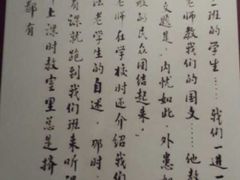 二班的学生……我们一进一
老师教我们的国文……他教
文题是，内忧如此，外患
散的民众团结起来，
老师在学校时还介绍我们
法老学生的自述，那时，
有课就跑到我们班来听
上课时教室里总是挤
都有